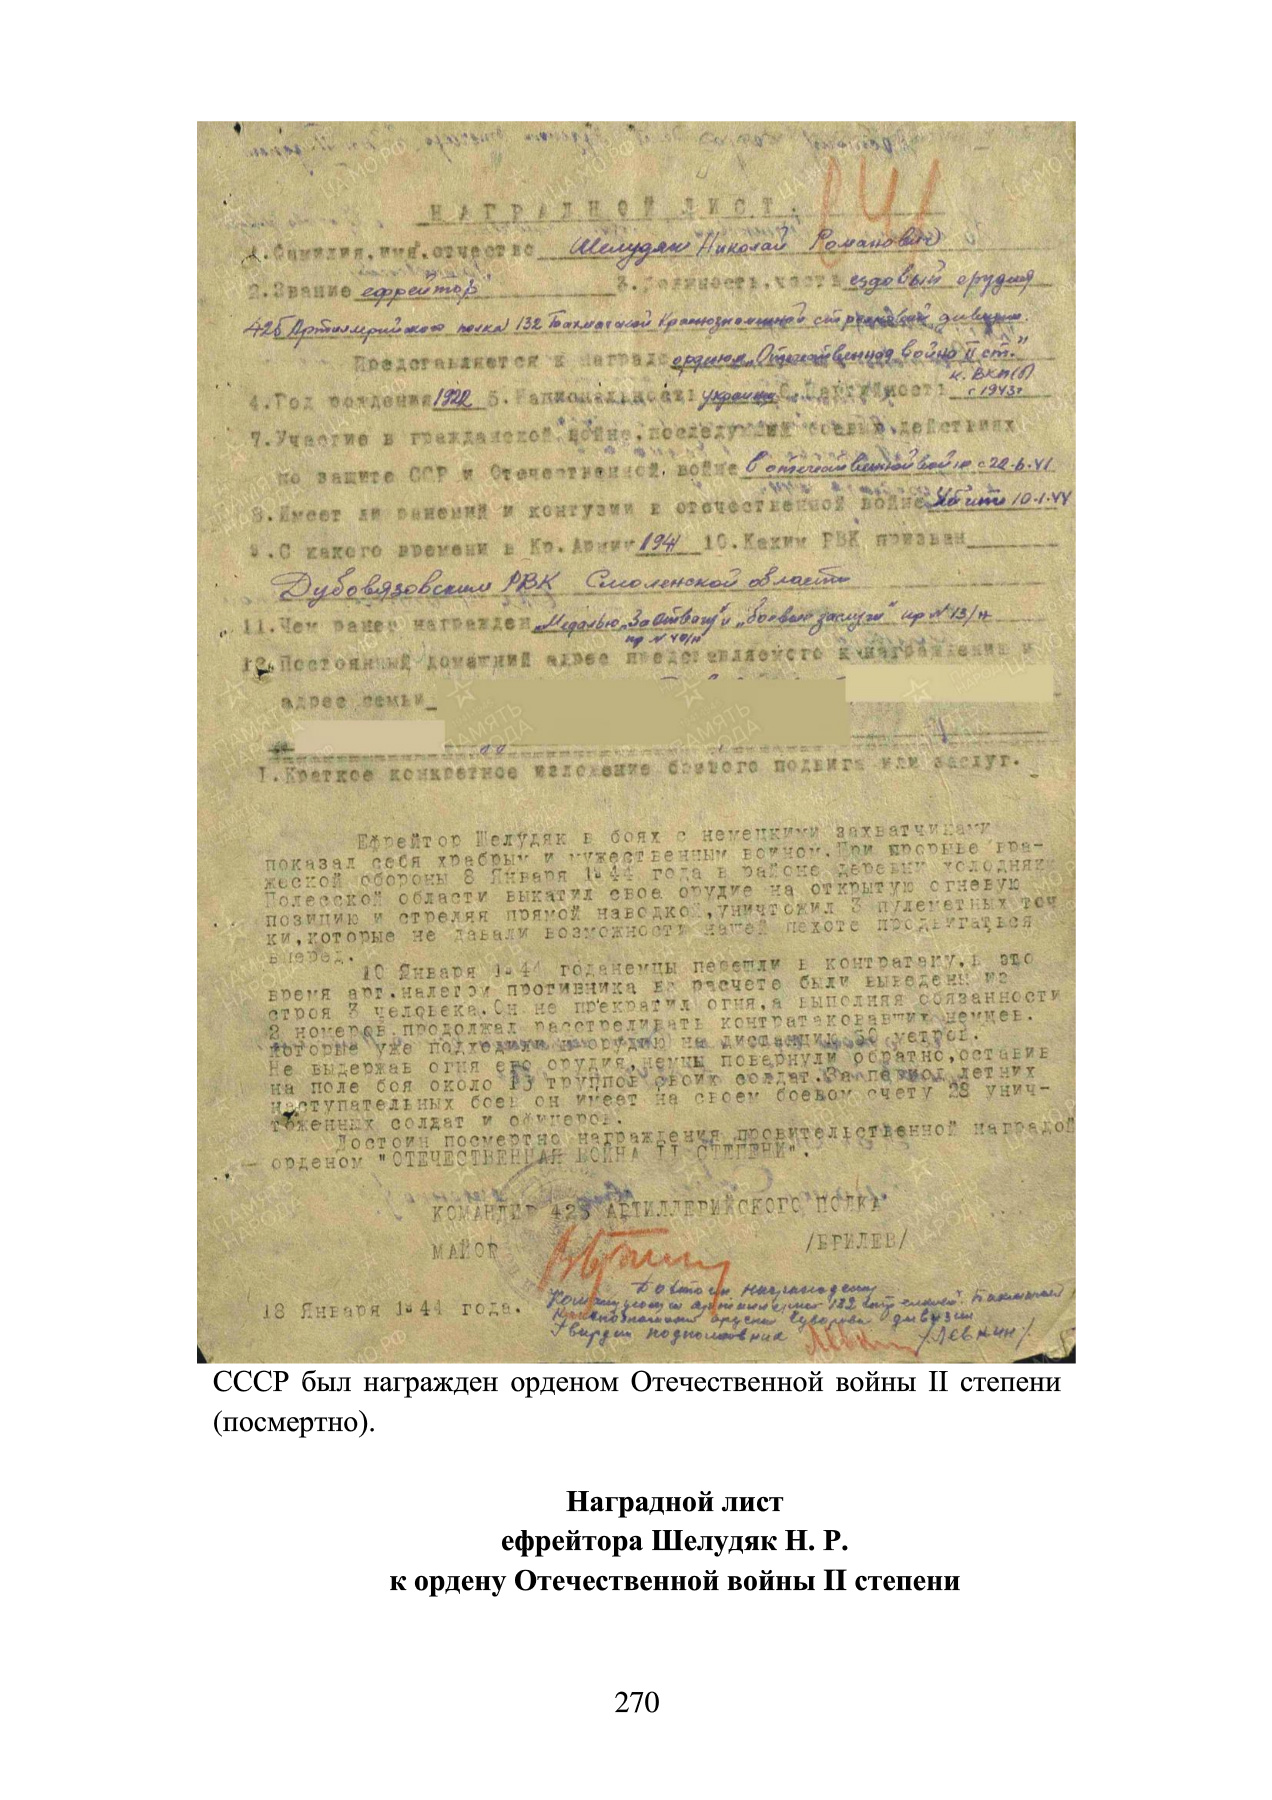 НАГРАДНОЙ ЛИСТ.
1.Фамилия,имя,отчество Шелудяк Николай Романович
2.Звание ефрейтор 3.Должность,часть ездовый орудия
425 Артиллерийского полка 132 Бахмачской Краснознаменной стрелковой дивизии.
Представляется к награде орденом „Отечественная война II ст."
к. ВКП(б)
4.Год рождения 1922 5.Национальность украинец 6.Партийность с 1943г
7.Участие в гражданской войне,последующих боевых действиях
по защите ССР и Отечественной войне В отечественной войне с 22.6.41
8.Имеет ли ранений и контузии в отечественной войне Убит 10.1.44
9.С какого времени в Кр.Армии 1941 10.Каким РВК призван
Дубовязовским РВК Смоленской области
11.Чем ранее награжден Медалью „За Отвагу" и „боевые заслуги" пр № 13/н
пр №
12.Постоянный домашний адрес представляемого к награждению и
адрес семьи
1.Краткое конкретное изложение боевого подвига или заслуг.
Ефрейтор Шелудяк в боях с немецкими захватчиками
показал себя храбрым и мужественным воином.При прорыве вра-
жеской обороны 8 Января 1944 года в районе деревни Холодник
Полесской области выкатил свое орудие на открытую огневую
позицию и стреляя прямой наводкой,уничтожил 3 пулеметных точ
ки,которые не давали возможности нашей пехоте продвигаться
вперед.
10 Января 1944 года немцы перешли в контратаку.В это
время арт.налетом противника в расчете были выведены из
строя 3 человека.Он не прекратил огня,а выполняя обязанности
2 номеров продолжал расстреливать контратаковавших немцев.
которые уже подходили к орудию на дистанцию 50 метров.
Не выдержав огня его орудия,немцы повернули обратно,оставив
на поле боя около 15 труппов своих солдат.За период летних
наступательных боев он имеет на своем боевом счету 28 унич-
тоженных солдат и офицеров.
Достоин посмертно награждения провительственной наградой
орденом "ОТЕЧЕСТВЕННАЯ ВОЙНА II СТЕПЕНИ".
КОМАНДИР 425 АРТИЛЛЕРИЙСКОГО ПОЛКА
МАЙОР /БРИЛЕВ/
Достоин награждения
18 Января 1944 года.
Командующий артиллерией 132 стрелковой Бахмачской
Краснознаменной ордена Суворова дивизии
Гвардии подполковник /Левкин/
СССР был награжден орденом Отечественной войны II степени
(посмертно).
Наградной лист
ефрейтора Шелудяк Н. Р.
к ордену Отечественной войны II степени
270